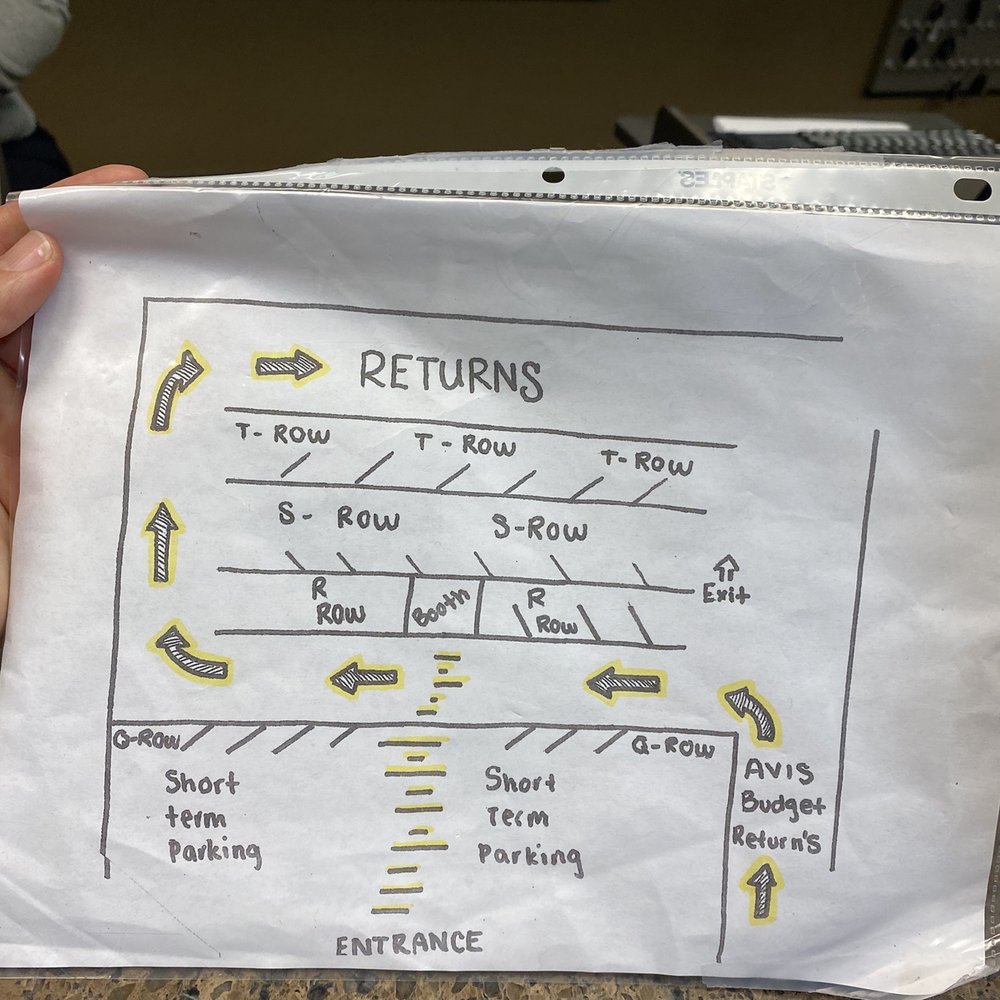 STAPLES
RETURNS
T- ROW T - ROW T-ROW
S- ROW S-ROW
R
ROW
Booth
R
ROW
Exit
Q-ROW
Q-ROW
Short
term
Parking
Short
Term
Parking
AVIS
Budget
Return's
ENTRANCE